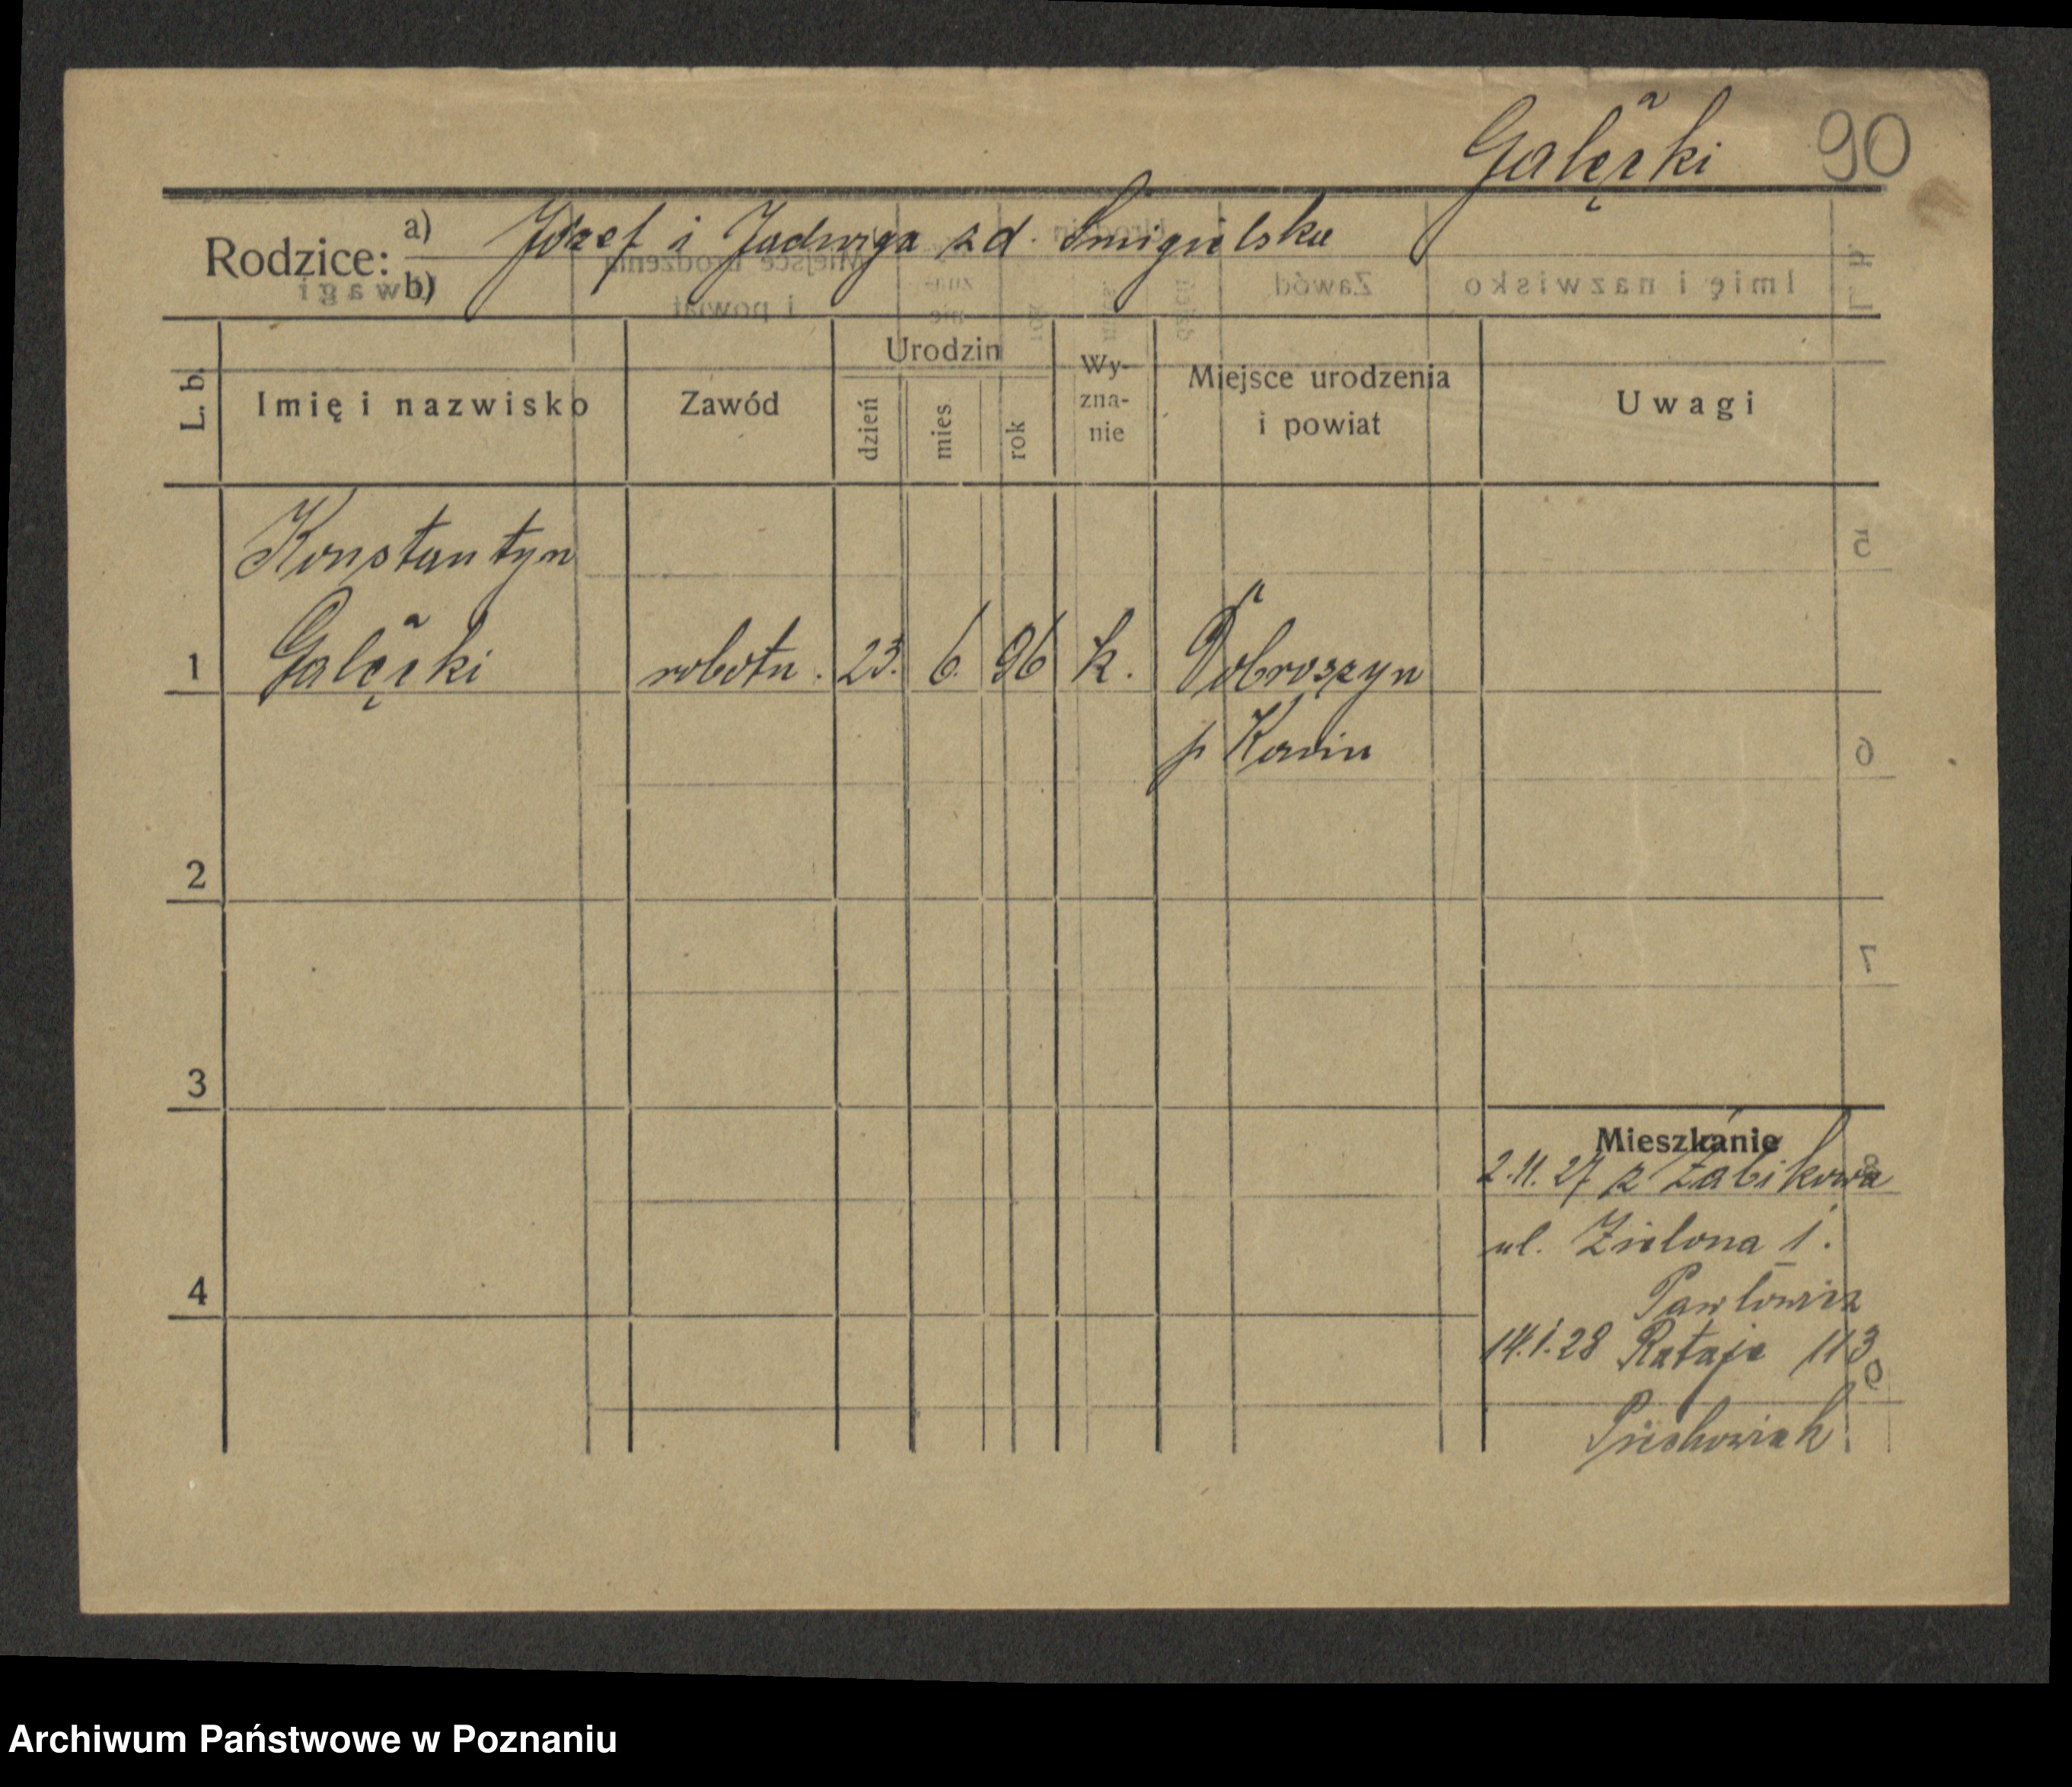 Gałęcki 90
Rodzice: a) Józef i Jadwiga z d. Śmigielska
b)
L. b. Imię i nazwisko Zawód Urodzin dzień mies. rok Wy-zna-nie Miejsce urodzenia i powiat Uwagi
Konstantyn
1 Gałęcki robotn. 23. 6. 96 k. Dobroszyn
p Konin
2
3
4
Mieszkanie
2.11.27 z Żabikowa
ul. Zielona 1.
14.1.28 Rataje 113
Archiwum Państwowe w Poznaniu